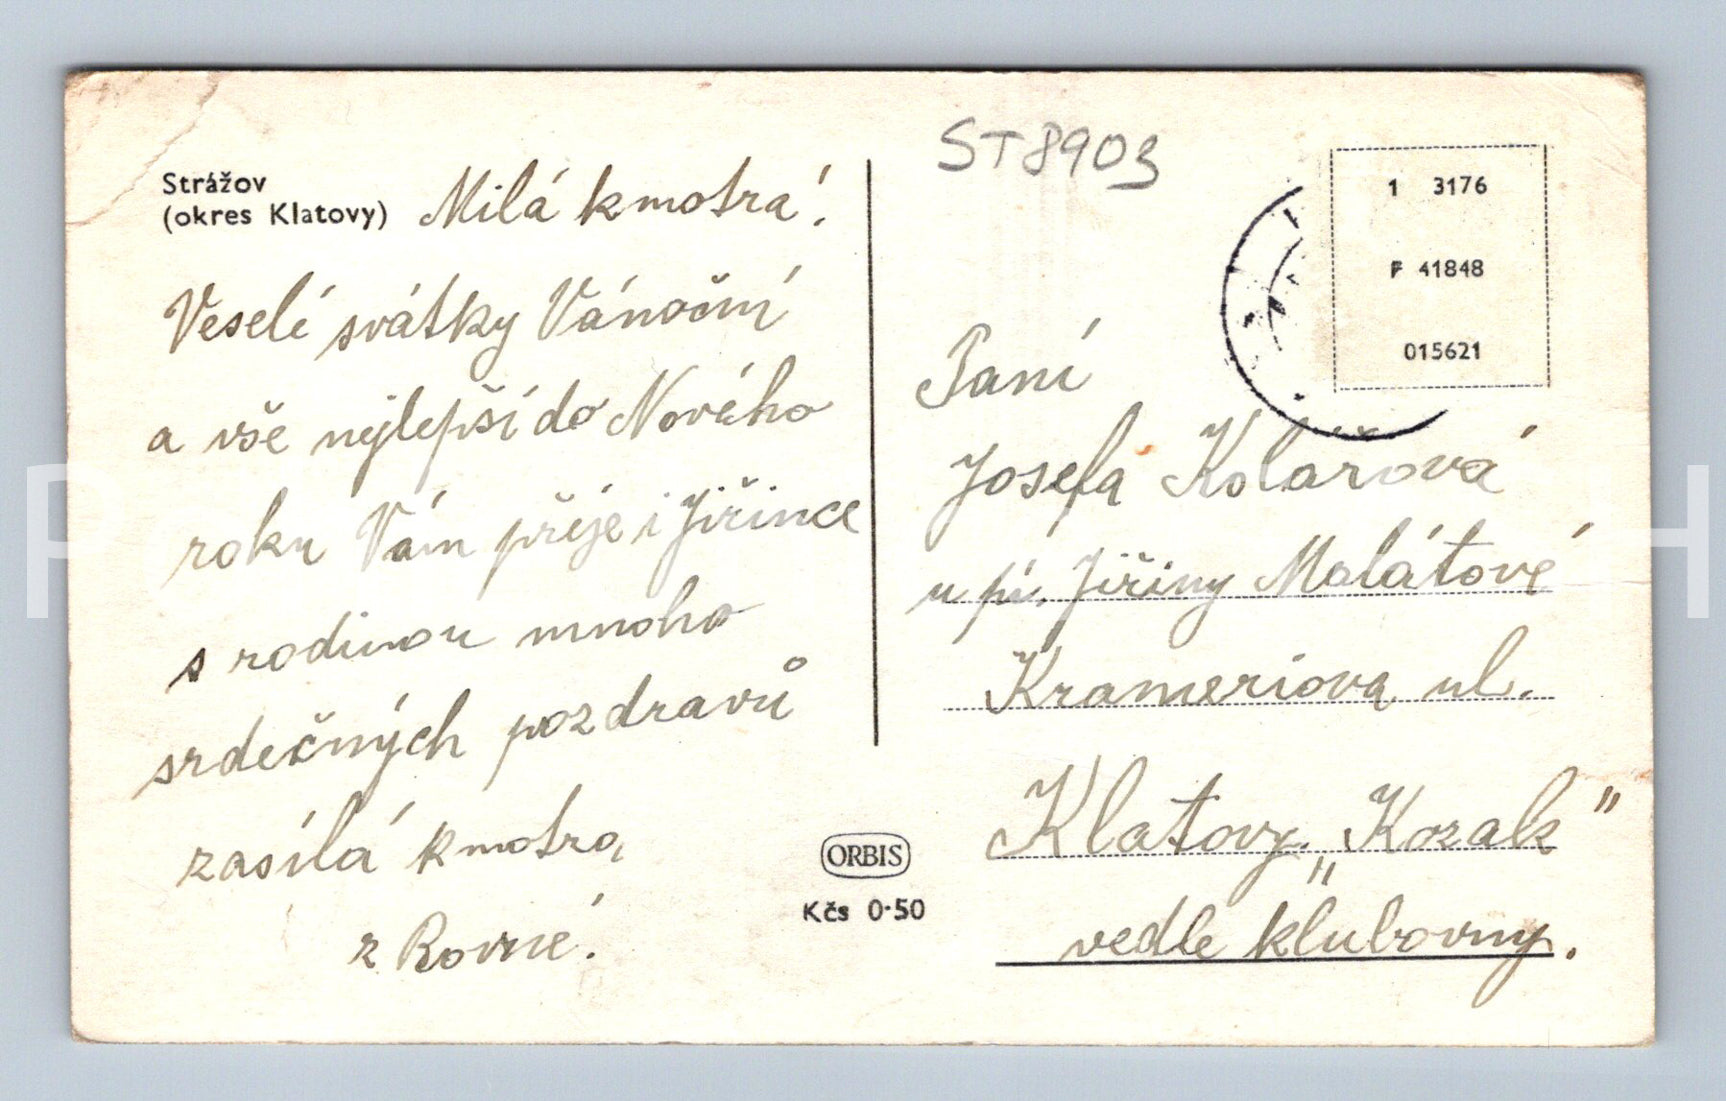 Strážov
(okres Klatovy)
Milá kmotra!
Veselé svátky Vánoční
a vše nejlepší do Nového
roku Vám přeje i Jiřince
s rodinou mnoho
srdečných pozdravů
zasílá kmotra
z Rovné.
ORBIS
Kčs 0·50
ST8903
1 3176
F 41848
015621
Paní
Josefa Kolářová
u pí. Jiřiny Malátové
Krameriova ul.
Klatovy. „Kozak"
vedle klubovny.